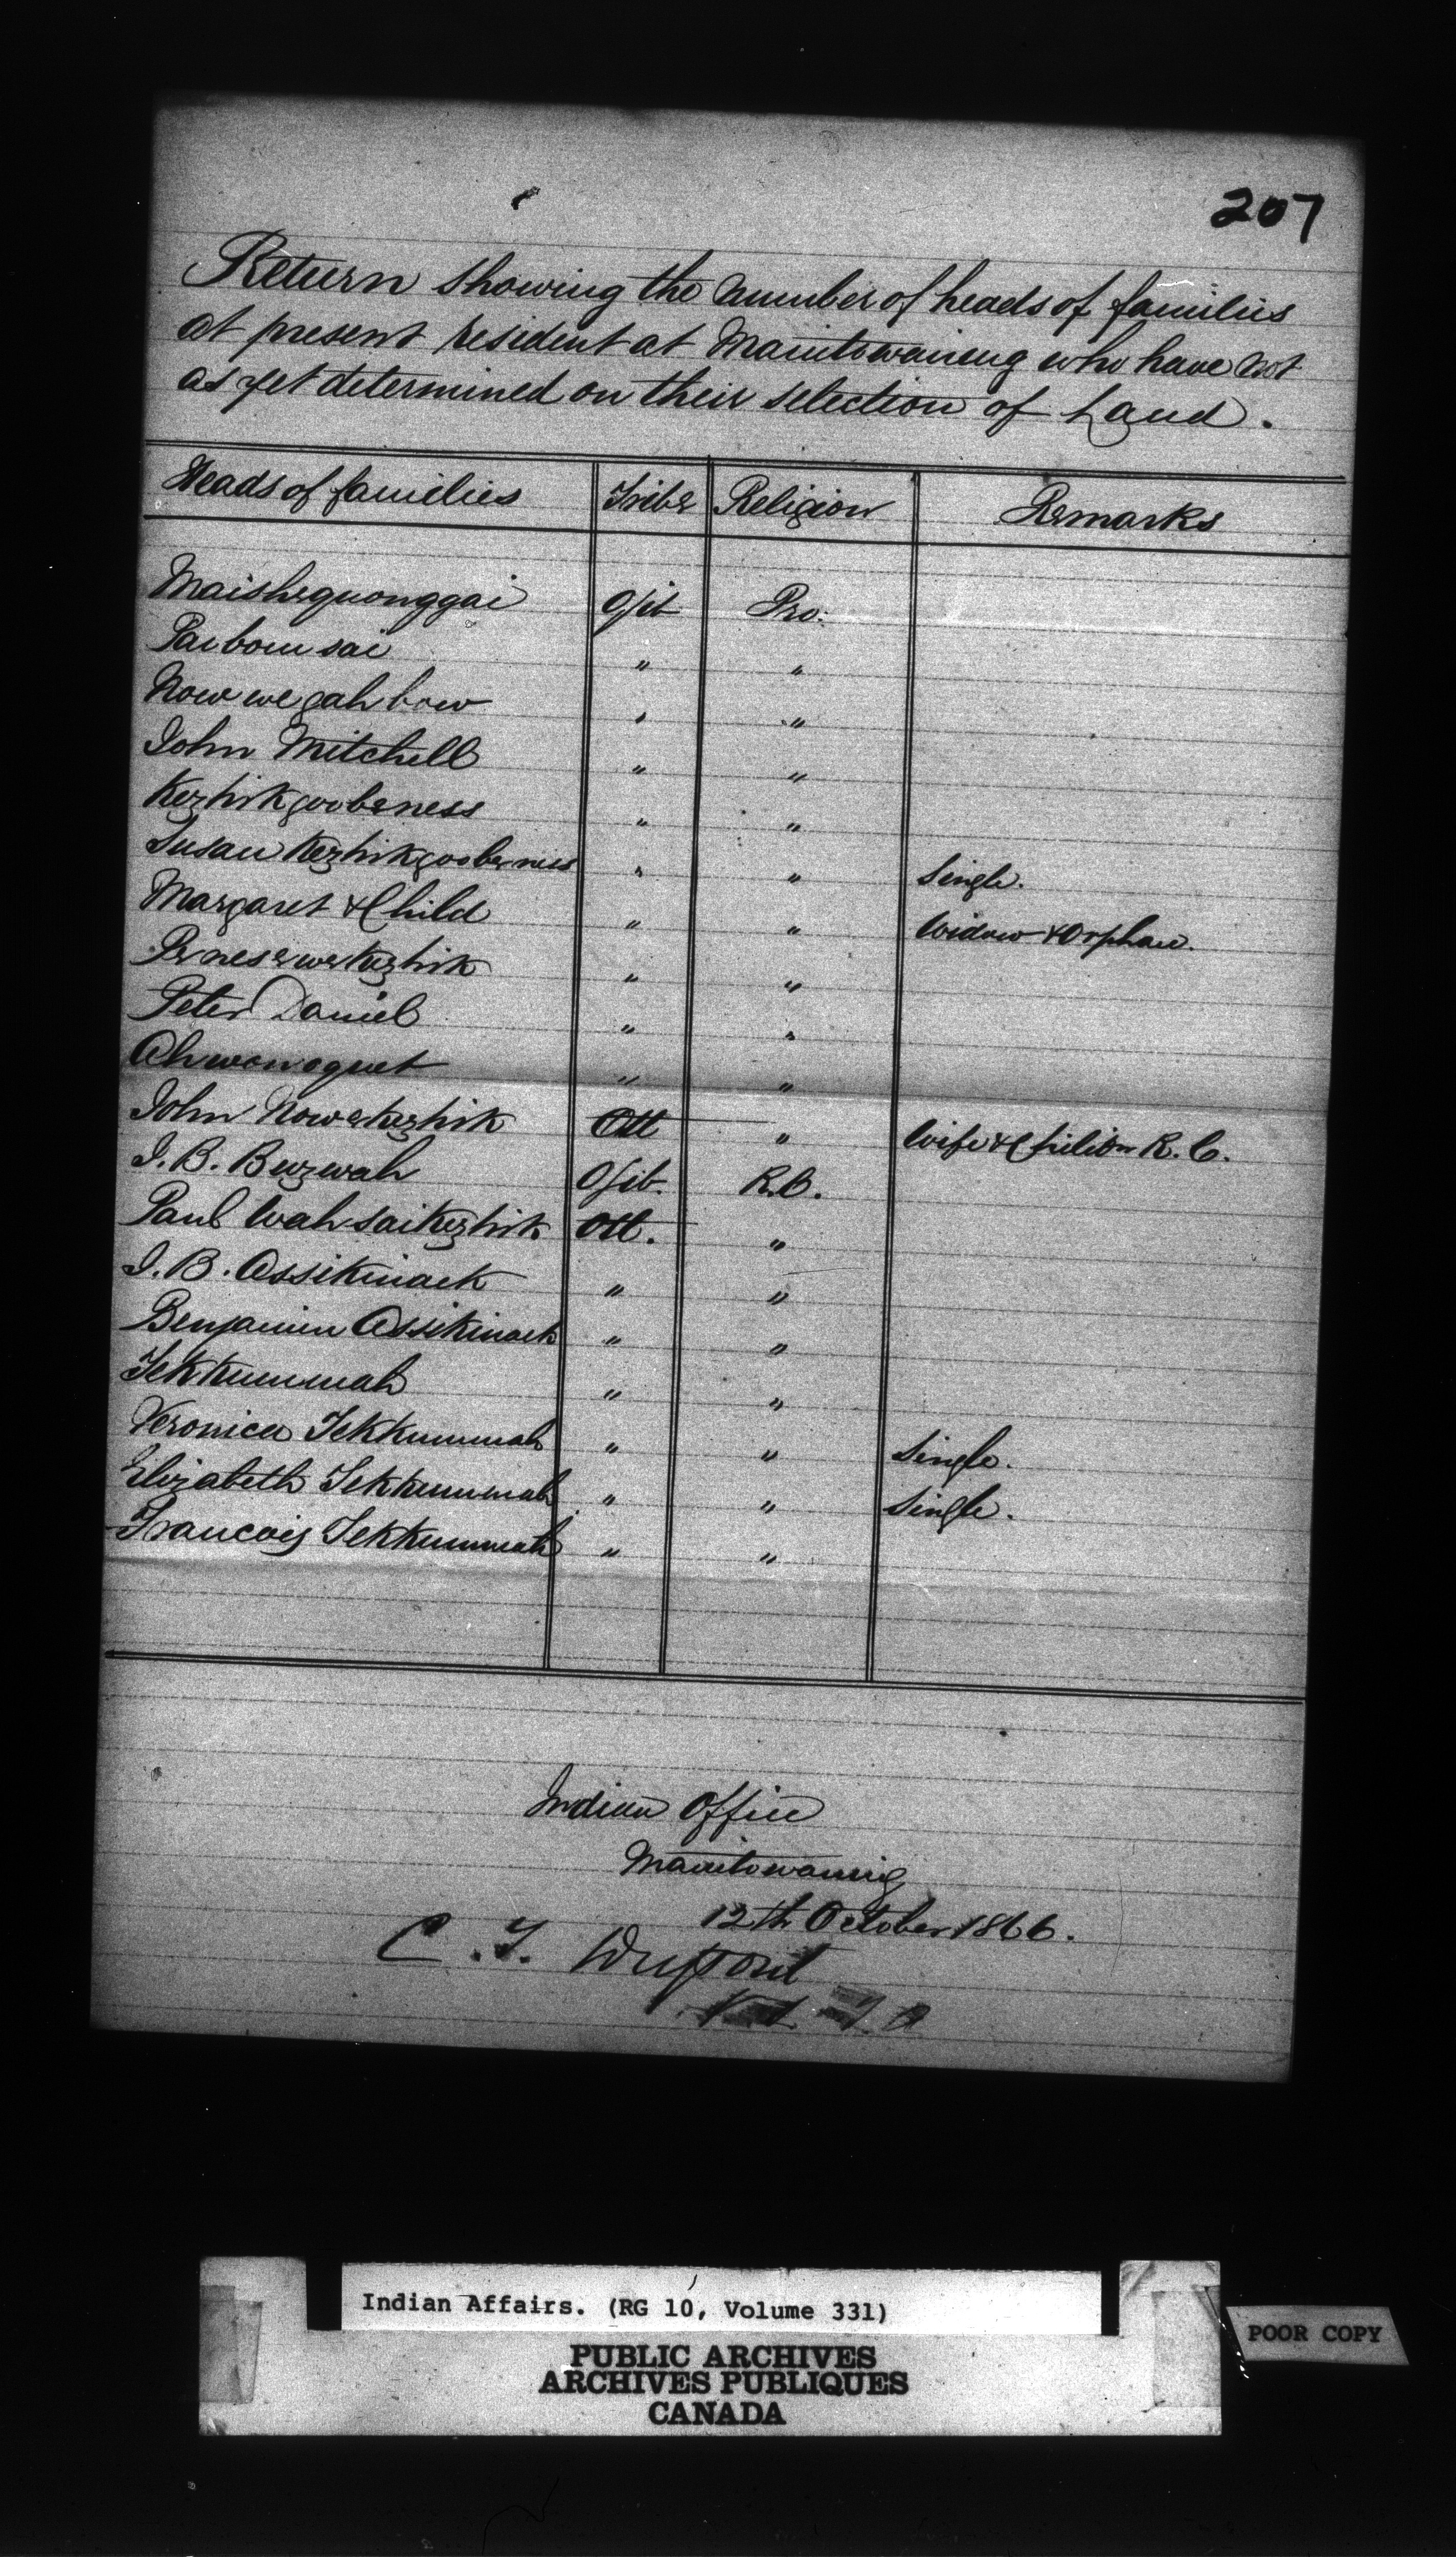 207
Return showing the number of heads of families
at present resident at Manitowaning who have not
as yet determined on their selection of Land.
Heads of families Tribe Religion Remarks
Maishequonggai Ojib Pro:
Paibomsai " "
Now we gah bow " "
John Mitchell " "
Kezhikgoobeness " "
Susan Kezhikgoobeness " " Single.
Margaret & Child " " Widow & Orphan.
Penesewekezhik " "
Peter Daniel " "
Ahwonoquet " "
John Nowekezhik Ott " Wife & Children R.C.
J.B. Buzwah Ojib. R.C.
Paul Wahsaikezhik Ott. "
J.B. Assikinack " "
Benjamin Assikinack " "
Tekkummah " "
Veronica Tekkummah " " Single.
Elizabeth Tekkummah " " Single.
Francois Tekkummah " "
Indian Office
Manitowaning
12th October 1866.
C. T. Dupont
Indian Affairs. (RG 10, Volume 331)
POOR COPY
PUBLIC ARCHIVES
ARCHIVES PUBLIQUES
CANADA